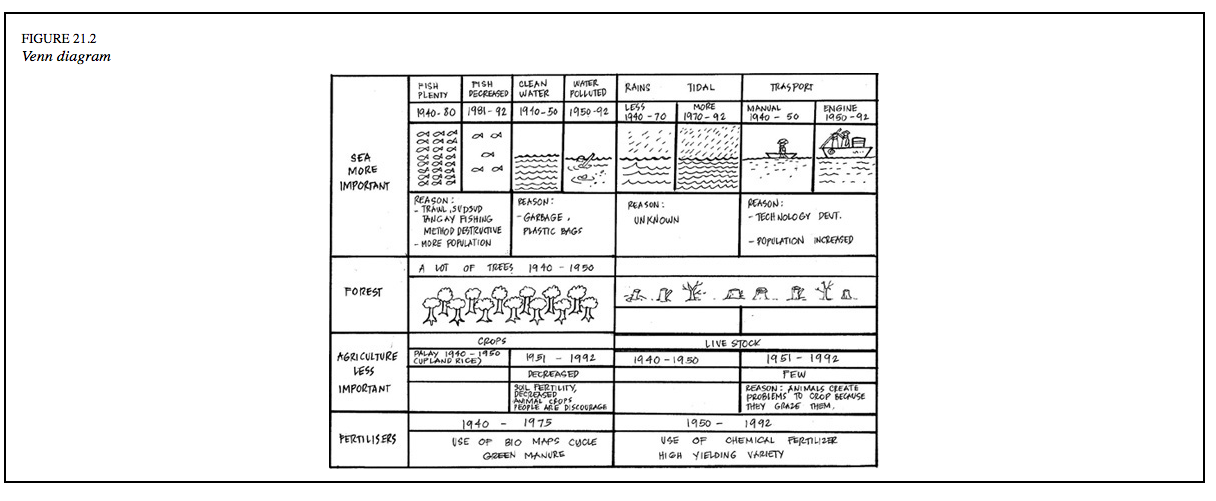 FIGURE 21.2
Venn diagram
FISH PLENTY
FISH DECREASED
CLEAN WATER
WATER POLLUTED
RAINS TIDAL
TRASPORT
1940-80
1981-92
1940-50
1950-92
LESS 1940-70
MORE 1970-92
MANUAL 1940 - 50
ENGINE 1950-92
SEA
MORE
IMPORTANT
REASON:
- TRAWL, SUDSUD
TANGAY FISHING
METHOD DESTRUCTIVE
- MORE POPULATION
REASON:
- GARBAGE,
PLASTIC BAGS
REASON:
UNKNOWN
REASON:
- TECHNOLOGY DEVT.
- POPULATION INCREASED
FOREST
A LOT OF TREES 1940 - 1950
AGRICULTURE
LESS
IMPORTANT
CROPS
LIVE STOCK
PALAY 1940 - 1950
(UPLAND RICE)
1951 - 1992
1940-1950
1951 - 1992
DECREASED
FEW
SOIL FERTILITY,
DECREASED
ANIMAL CROPS
PEOPLE ARE DISCOURAGE
REASON: ANIMALS CREATE
PROBLEMS TO CROP BECAUSE
THEY GRAZE THEM.
FERTILISERS
1940 - 1975
1950 - 1992
USE OF BIO MAPS CYCLE
GREEN MANURE
USE OF CHEMICAL FERTILIZER
HIGH YIELDING VARIETY